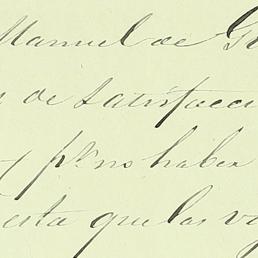 Manuel de
de satisfacci
pr. no haber
esta que las v